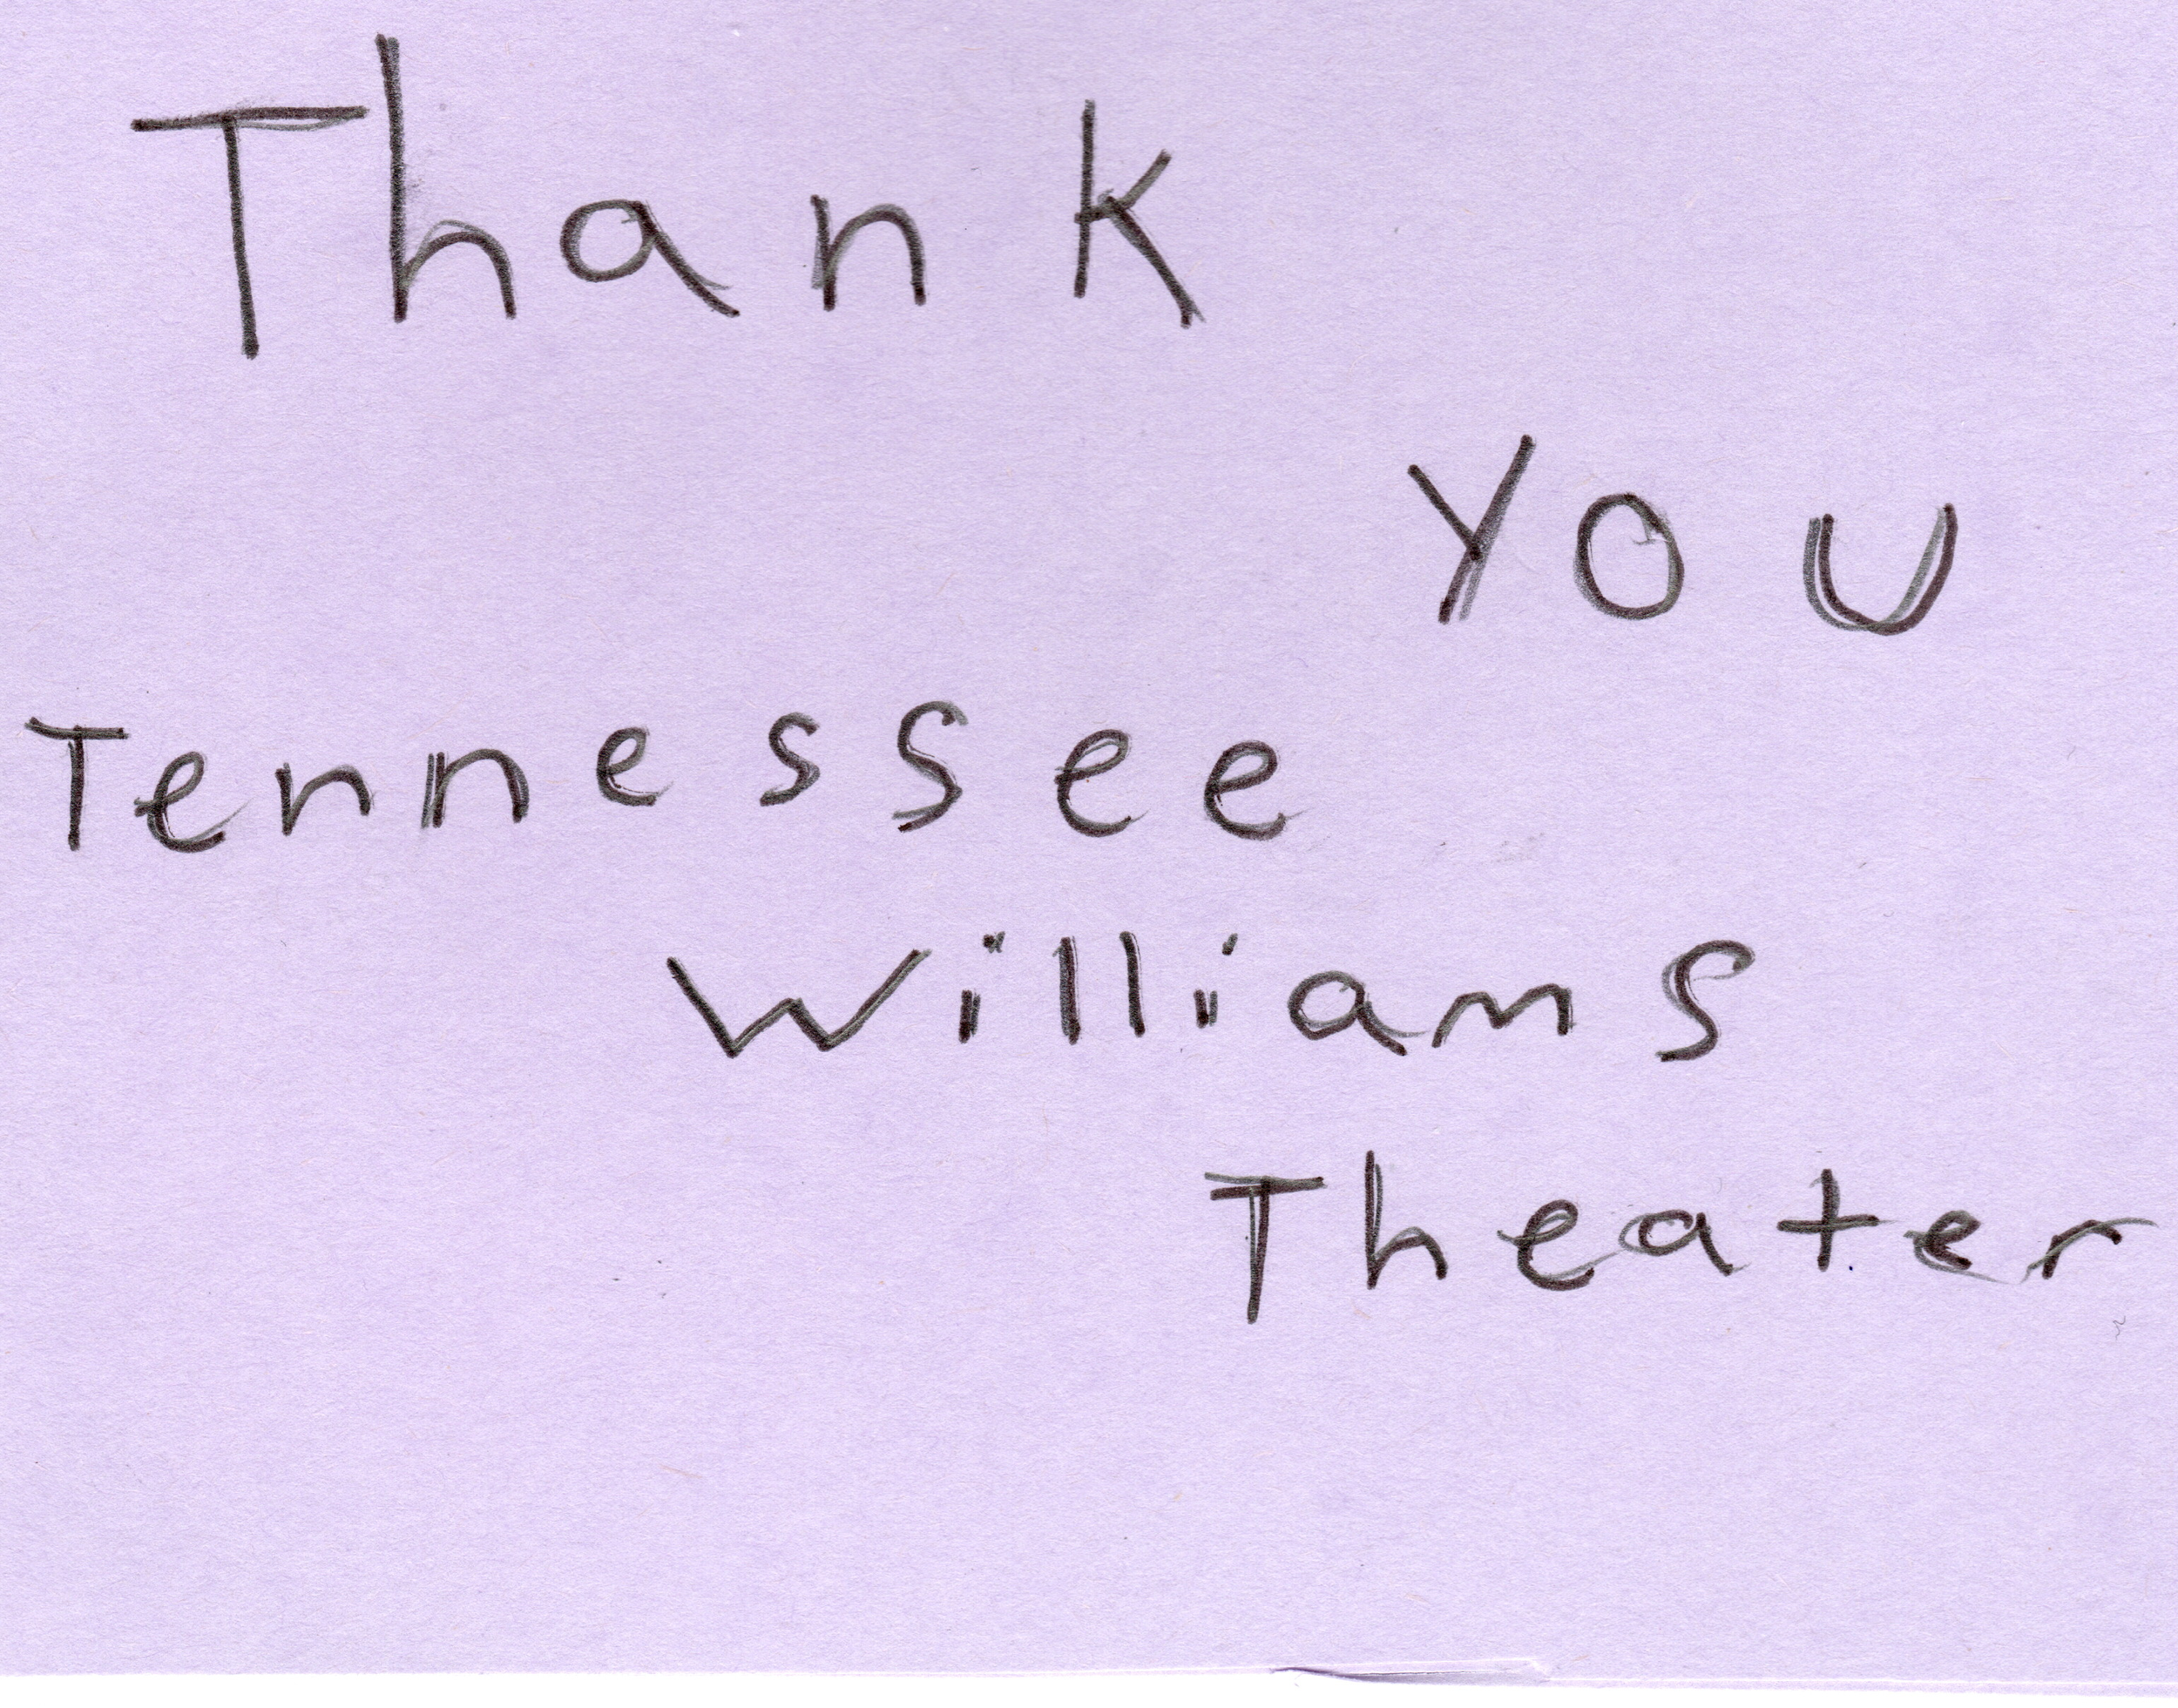 Thank
you
Tennessee
Williams
Theater